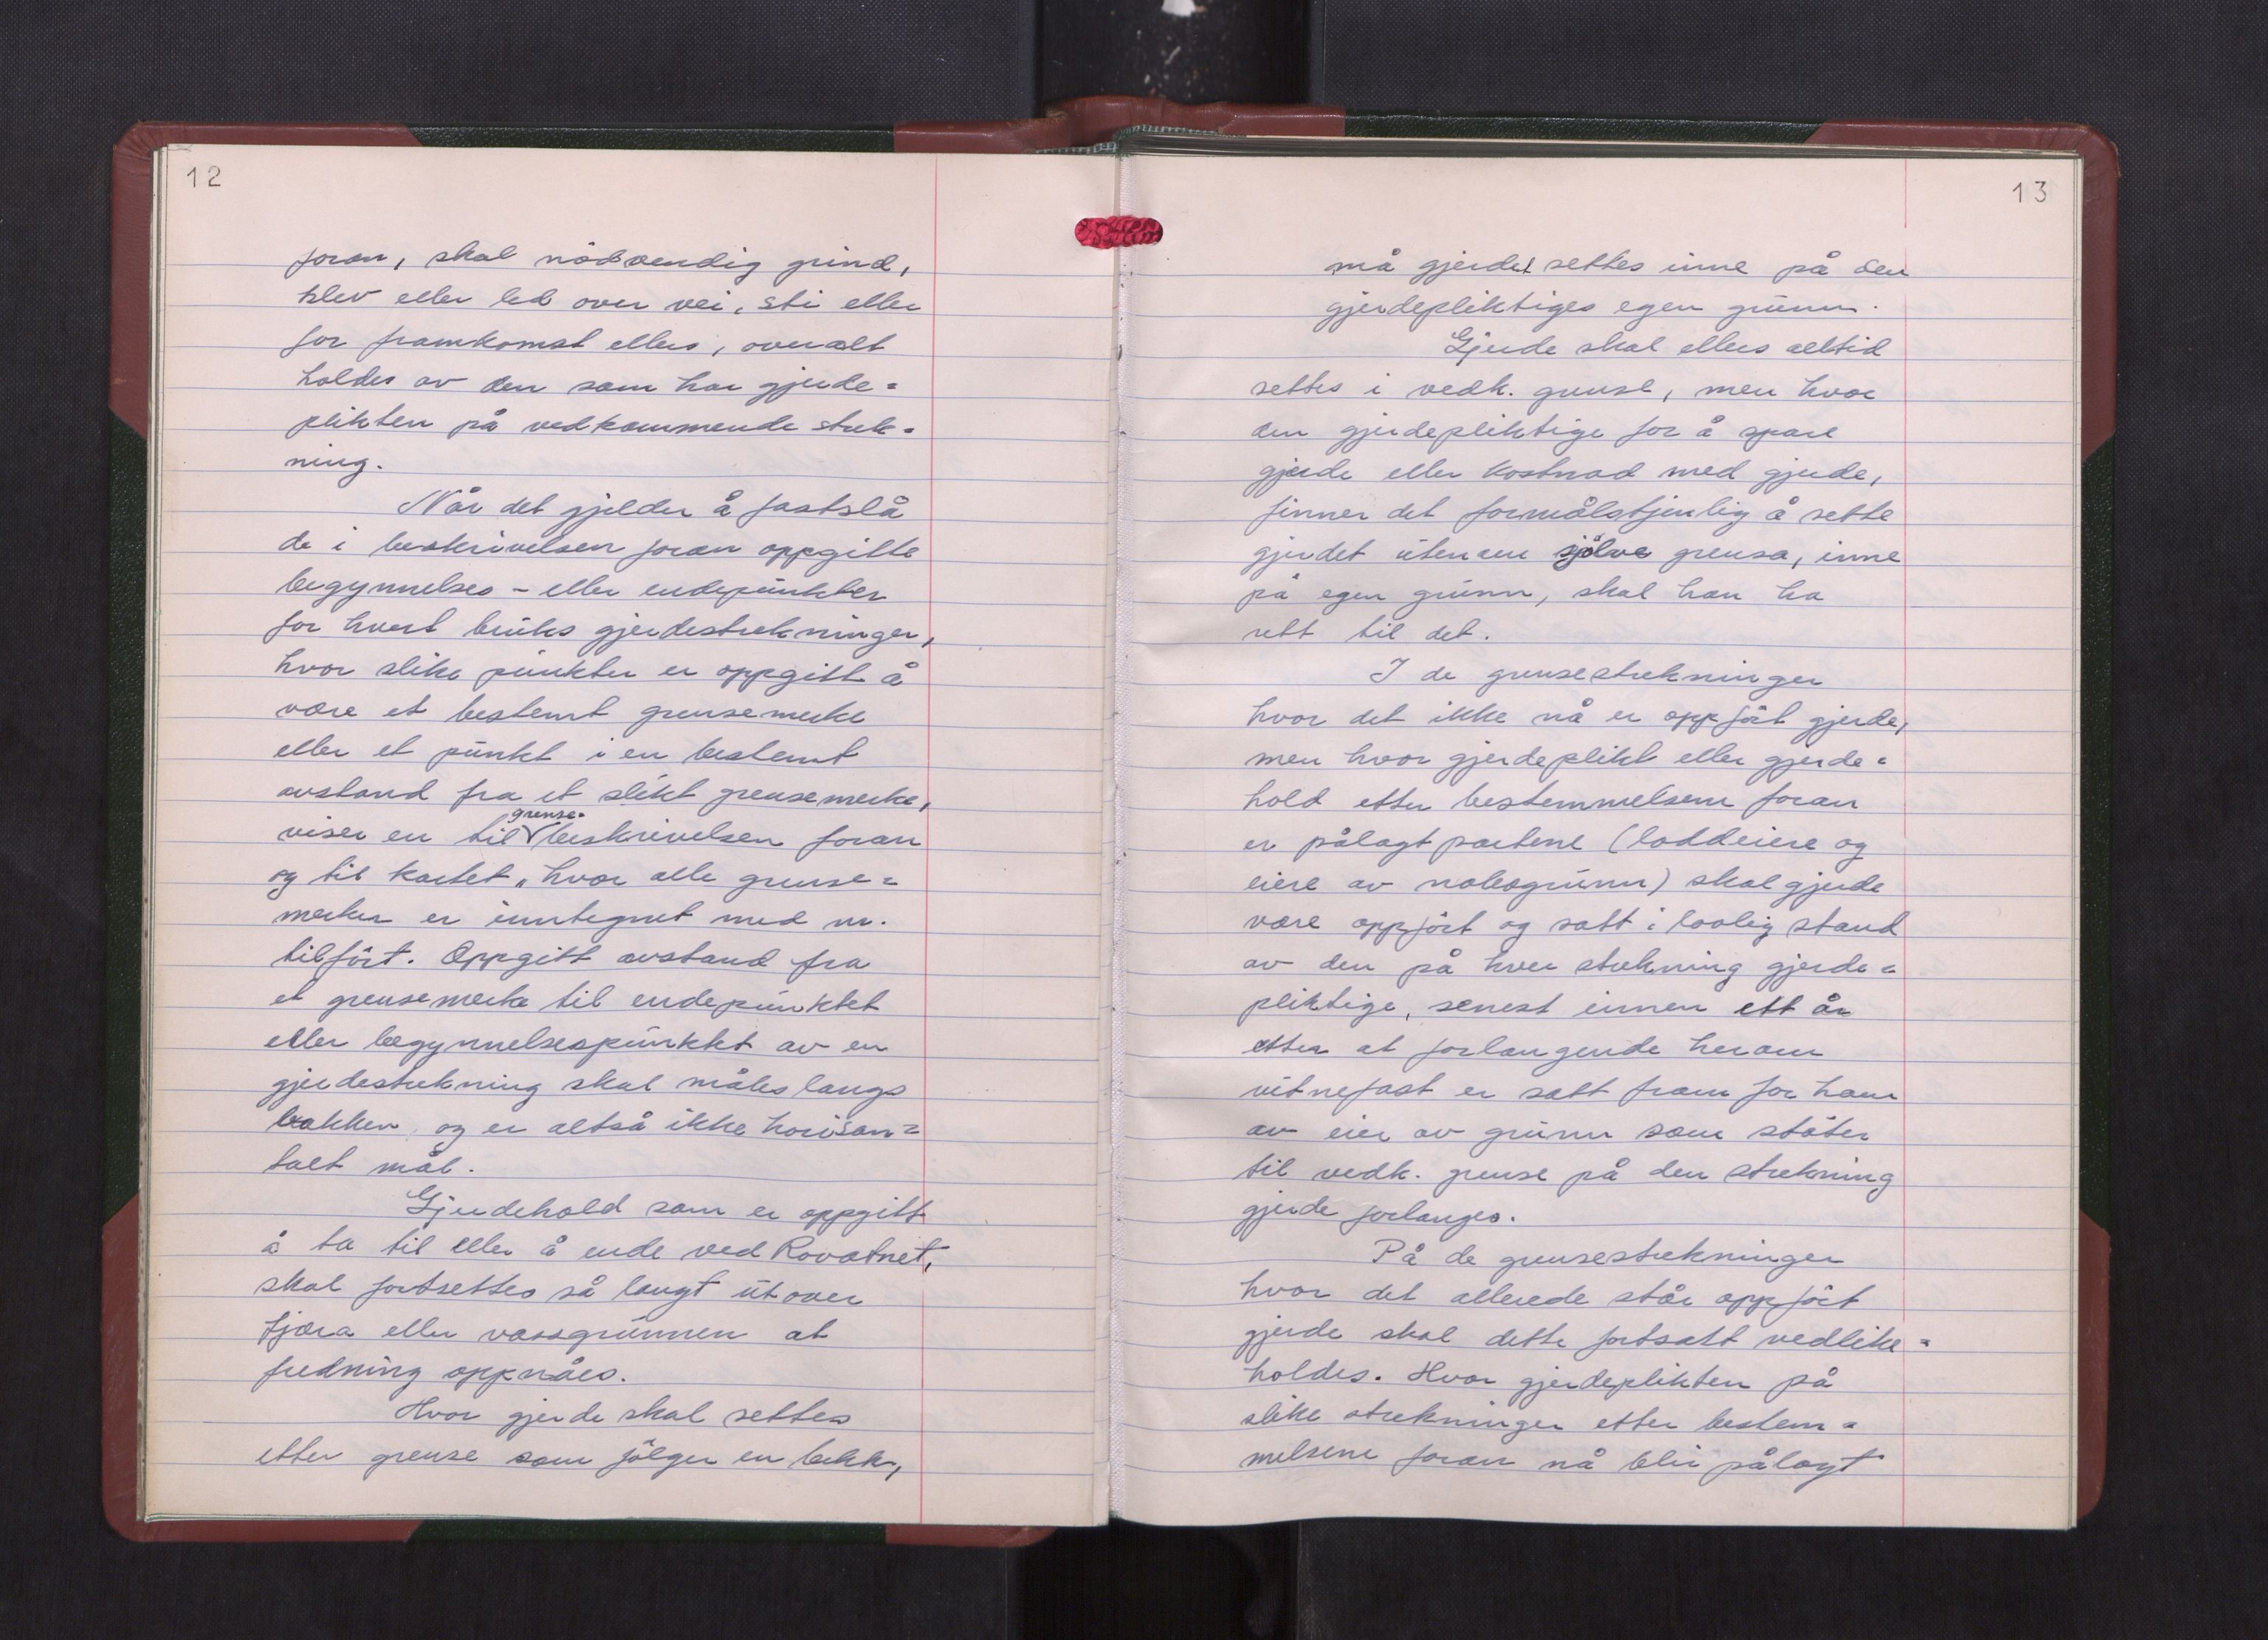 12
foran, skal nödvendig grind,
klev eller led over vei, sti eller
for framkomst ellers, overalt
holdes av den som har gjerde=
plikten på vedkommende strek=
ning.
Når det gjelder å fastslå
de i beskrivelsen foran oppgitte
begynnelses - eller endepunkter
for hvert bruks gjerdestrekninger,
hvor slike punkter er oppgitt å
være et bestemt grensemerke
eller et punkt i en bestemt
avstand fra et slikt grensemerke,
viser en til grense=beskrivelsen foran
og til kartet, hvor alle grense=
merker er inntegnet med nr.
tilfört. Oppgitt avstand fra
et grensemerke til endepunktet
eller begynnelsespunktet av en
gjerdestrekning skal måles langs
bakken og er altså ikke horisan=
talt mål.
Gjerdehold som er oppgitt
å ta til eller å ende ved Rovatnet,
skal fortsettes så langt utover
fjæra eller vassgrunnen at
fredning oppnåes.
Hvor gjerde skal settes
etter grense som fölger en bekk,
13
må gjerdet settes inne på den
gjerdepliktiges egen grunn.
Gjerde skal ellers alltid
settes i vedk. grense, men hvor
den gjerdepliktige for å spare
gjerde eller kostnad med gjerde,
finner det formålstjenlig å sette
gjerdet utenom sjölve grensa, inne
på egen grunn, skal han ha
rett til det.
I de grensestrekninger
hvor det ikke nå er oppfört gjerde,
men hvor gjerdeplikt eller gjerde=
hold etter bestemmelsene foran
er pålagt partene (loddeiere og
eiere av nabogrunn) skal gjerde
være oppfört og satt i lovlig stand
av den på hver strekning gjerde=
pliktige, senest innen ett år
etter at forlangende herom
vitnefast er satt fram for ham
av eier av grunn som stöter
til vedk. grense på den strekning
gjerde forlanges.
På de grensestrekninger
hvor det allerede står oppfört
gjerde skal dette fortsatt vedlike=
holdes. Hvor gjerdeplikten på
slike strekninger etter bestem=
melsene foran nå blir pålagt